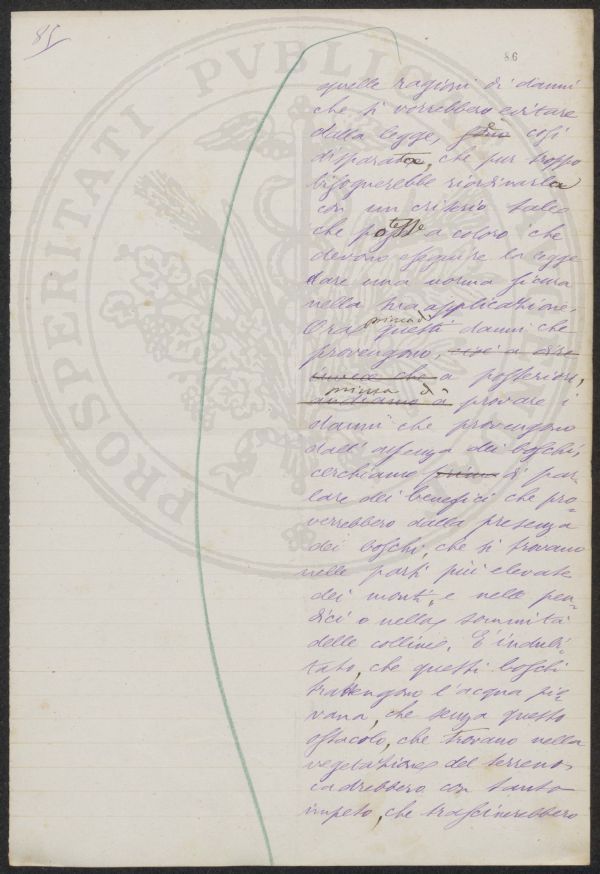 85
86
quelle ragioni di danni
che si vorrebbero evitare
dalla legge, sono così
disparate, che pur troppo
bisognerebbe riordinarla
con un criterio tale
che potesse a coloro che
devono eseguire la legge
dare una norma sicura
nella sua applicazione.
Ora questi danni che
provengono, cioè a dire
invece che a posteriori,
prima di
andiamo a provare i
danni che provengono
dall'assenza dei boschi,
cerchiamo prima di par-
lare dei benefici che pro-
verrebbero dalla presenza
dei boschi, che si trovano
nelle parti più elevate
dei monti, e nelle pen-
dici o nella sommità
delle colline. È indubi-
tato, che questi boschi
trattengono l'acqua pio-
vana, che senza questo
ostacolo, che trovano nella
vegetazione del terreno
cadrebbero con tanto
impeto, che trascinerebbero
PROSPERITATI PVBLICAE